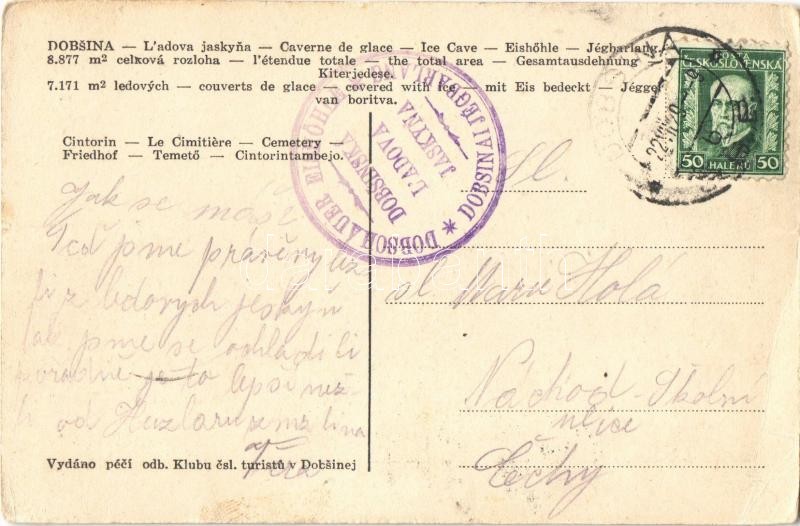 DOBŠINA — L'adova jaskyňa — Caverne de glace — Ice Cave — Eishöhle — Jégbarlang.
8.877 m² celková rozloha — l'étendue totale — the total area — Gesamtausdehnung —
Kiterjedese.
7.171 m² ledových — couverts de glace — covered with ice — mit Eis bedeckt — Jégge
van boritva.
Cintorin — Le Cimitière — Cemetery —
Friedhof — Temető — Cintorintambejo.
DOBSCHAUER EISHÖHLE
DOBSINAI JEGBARLANG
DOBŠINSKÁ
ĽADOVÁ
JASKYŇA
ČESKOSLOVENSKÁ
50 HALÉŘŮ 50
Jak se máš
Teď jsme právě vylez
li z ledových jeskyň
tak jsme se ochladili
pořádně je to lepší než
od
Věra
Sl.
sl. Marie Holá
Náchod - Školní
ulice
Čechy
Vydáno péčí odb. Klubu čsl. turistů v Dobšinej